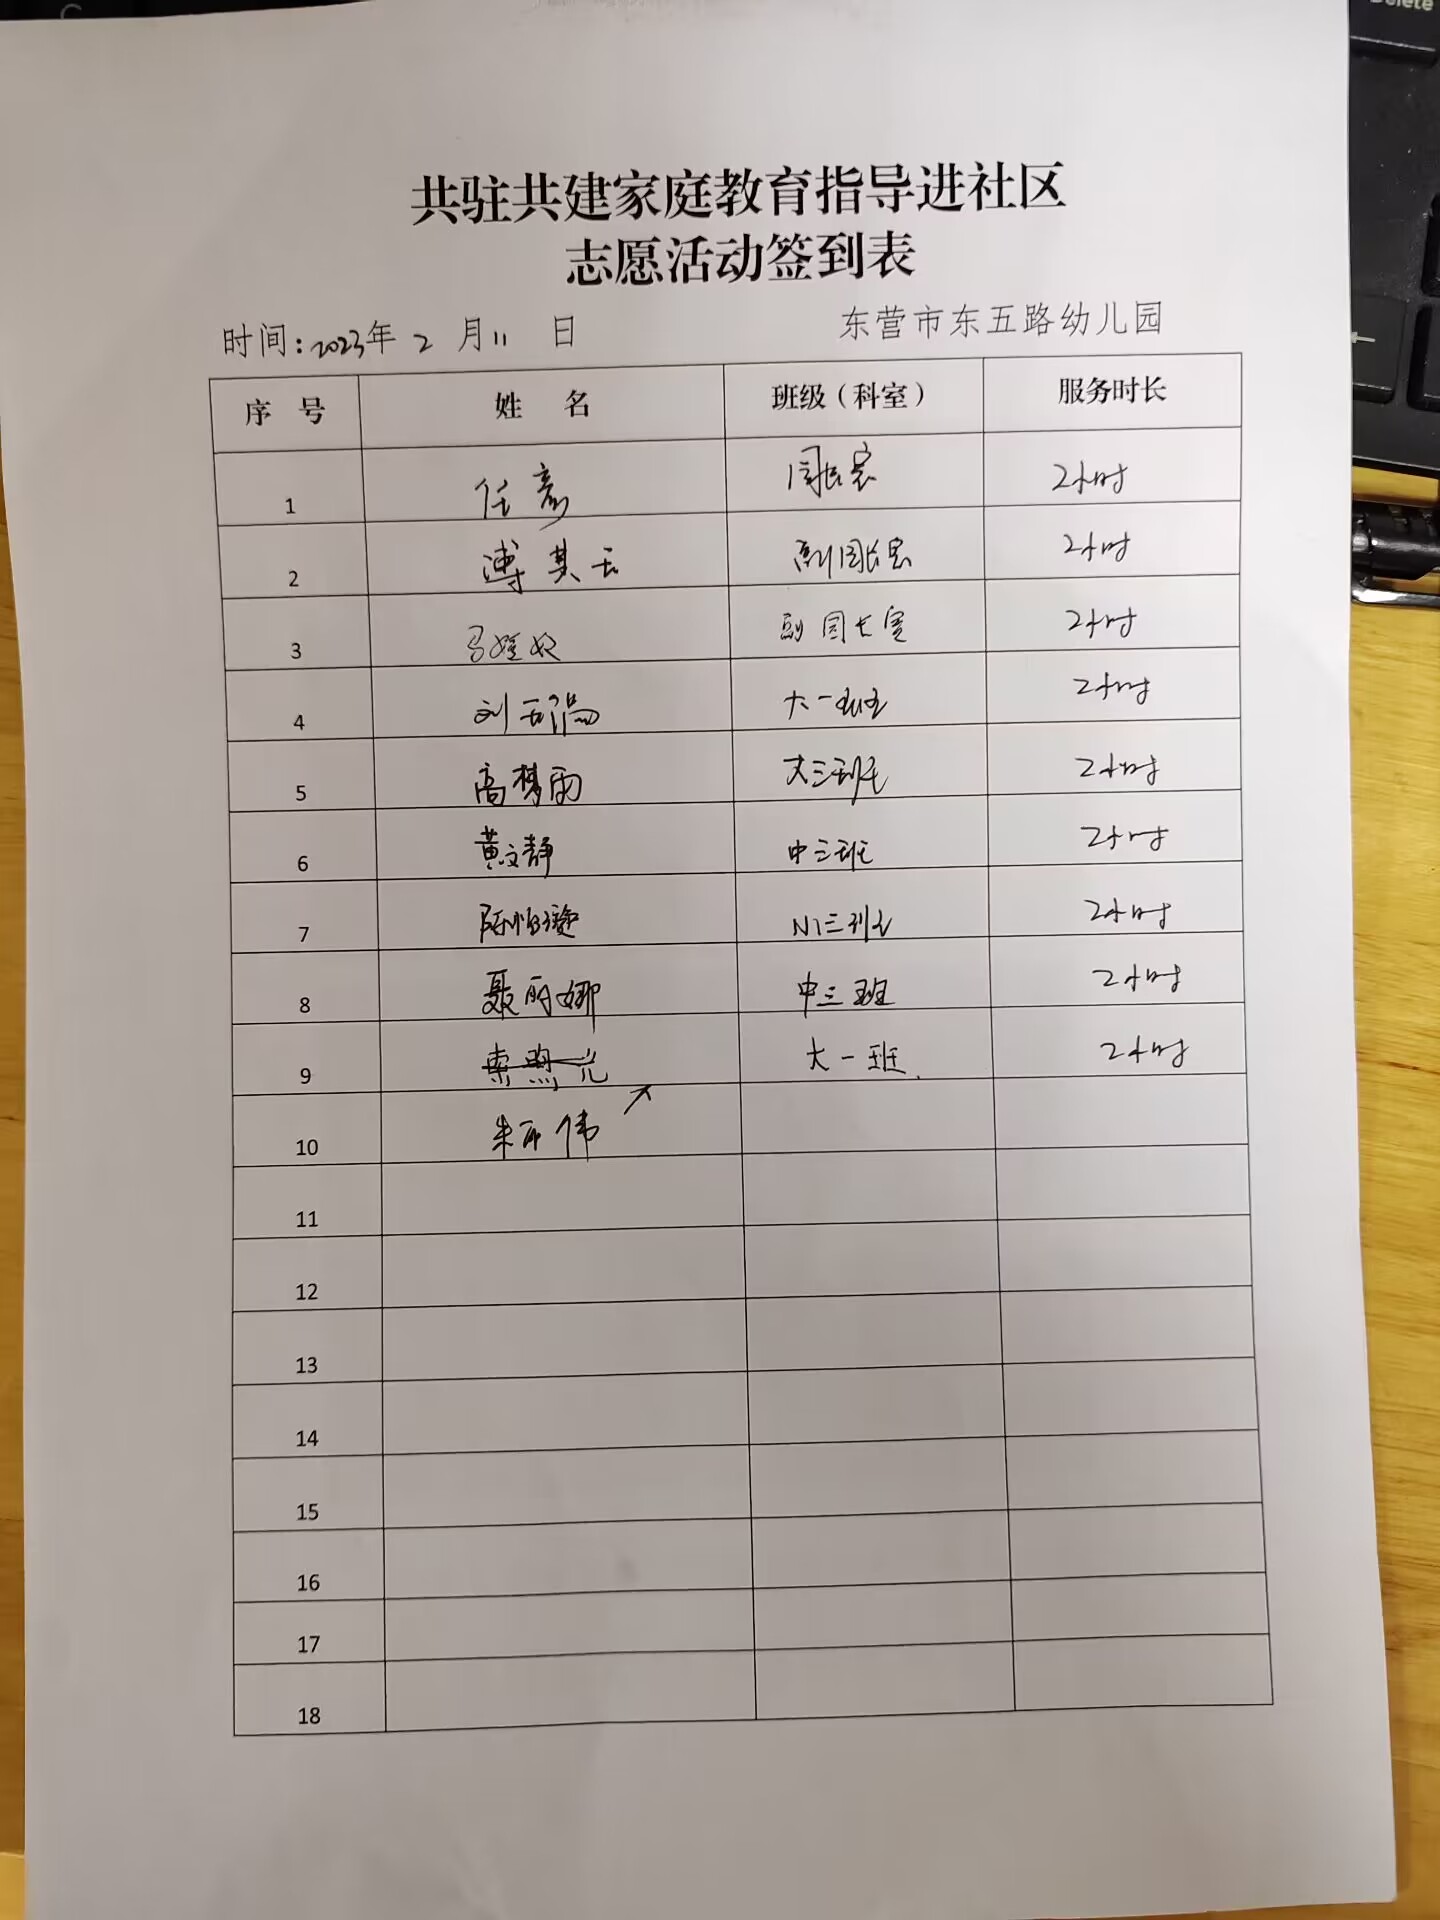 Delete
共驻共建家庭教育指导进社区
志愿活动签到表
时间:2023年 2 月 11 日 东营市东五路幼儿园
序 号 姓 名 班级(科室) 服务时长
1 任彦 园长室 2小时
2 傅其云 副园长室 2小时
3 副园长室 2小时
4 刘 大一班 2小时
5 高梦雨 大三班 2小时
6 黄文静 中三班 2小时
7 陈怡璇 小三班 2小时
8 聂丽娜 中三班 2小时
9 大一班 2小时
10 朱丽伟
11
12
13
14
15
16
17
18